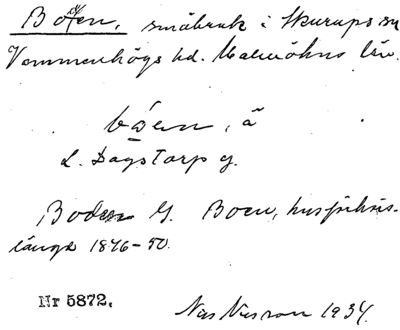 Boen, småbruk i Skurups sn
Vemmenhögs hd. Malmöhus län.
bóen, ä
L. Dagstorp g.
Boden G. Boen, husförhörs-
längd 1846-50.
Nr 5872.
Nils Nilsson 1934.